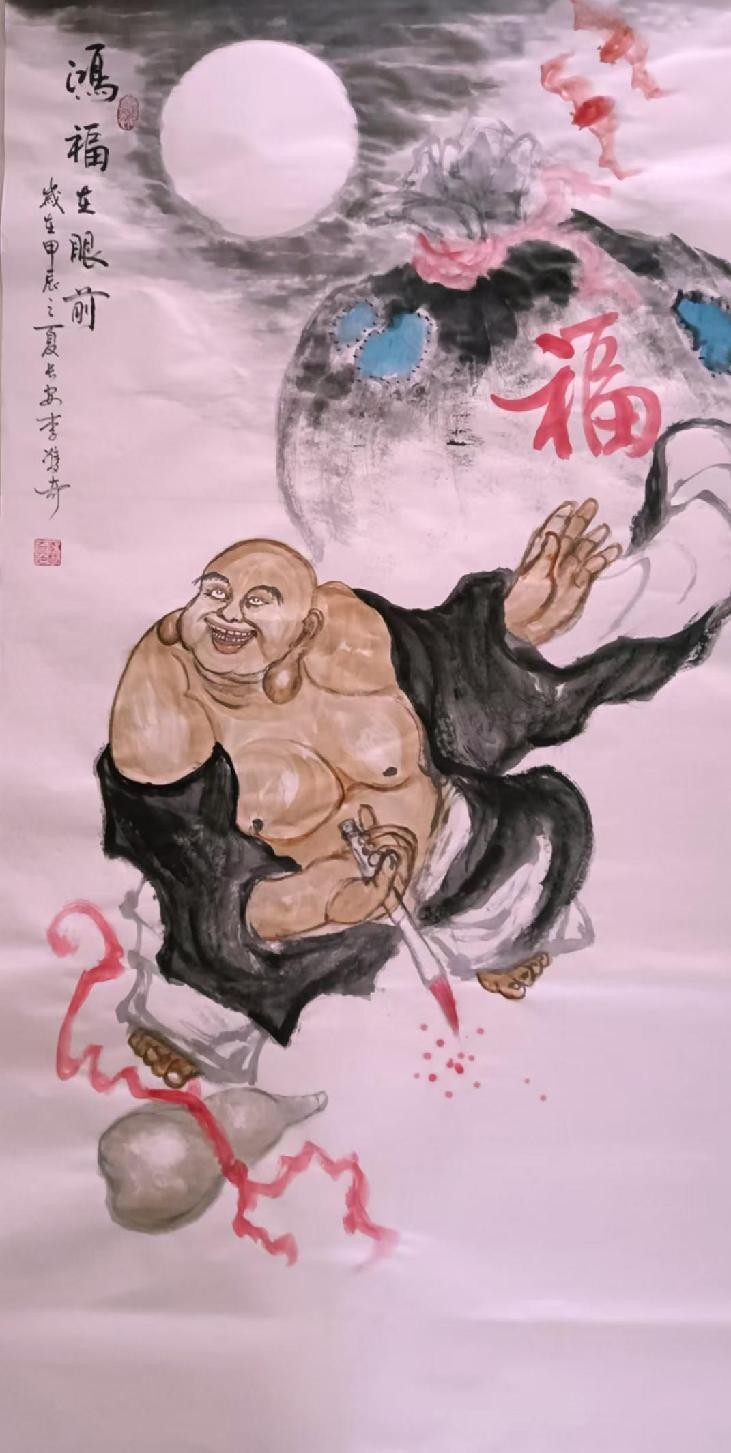 鸿福在眼前
岁在甲辰之夏长安李
福